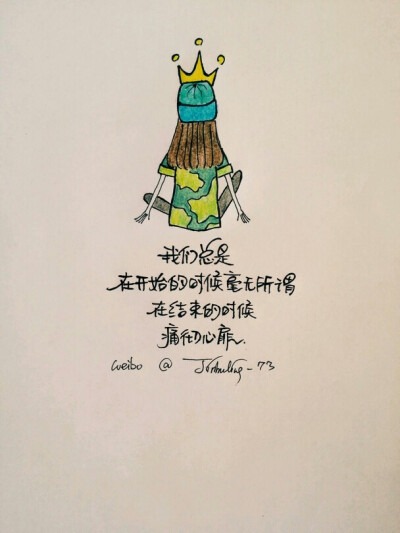 我们总是
在开始的时候毫无所谓
在结束的时候
痛彻心扉.
weibo @